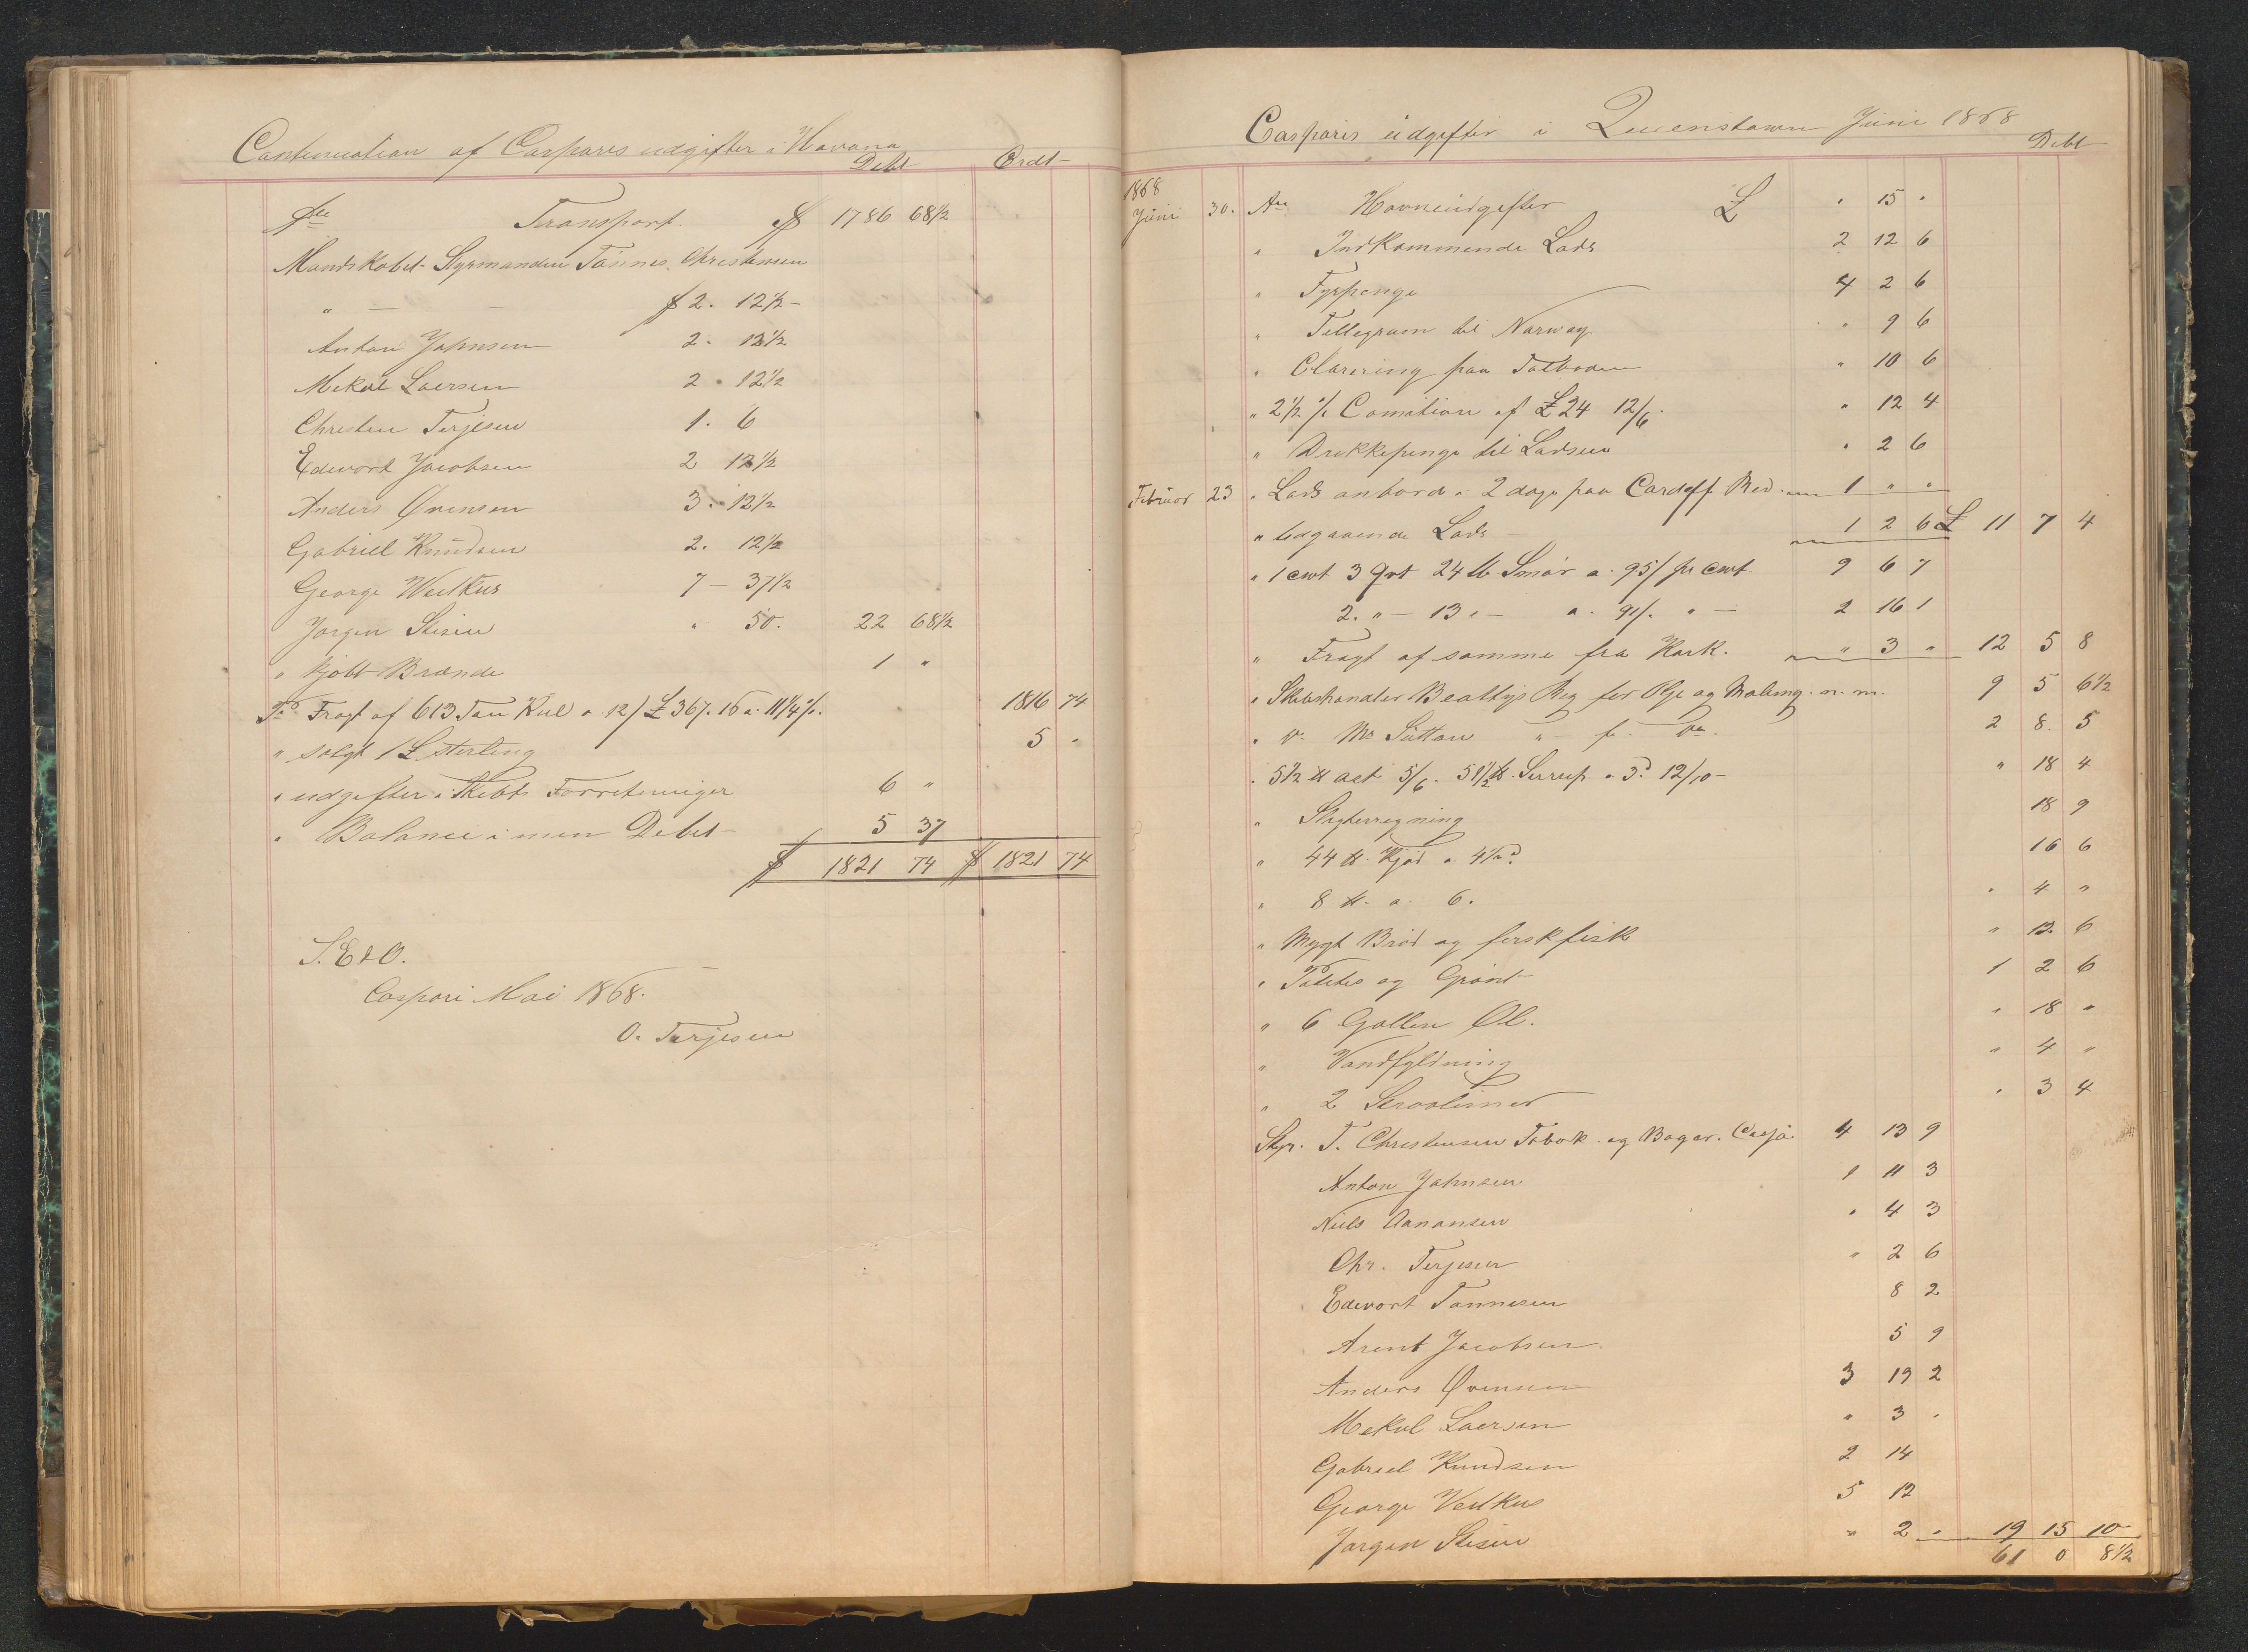 Continuation af Casparis udgifter i Havana
Debt Crdt
Transport. $ 1786 68½
Mandskabet Styrmanden Tönnes Christensen
" — $ 2. 12½ -
Anton Johnsen 2. 12½
Mekal Laersen 2 . 12½
Christen Terjesen 1. 6
Edevart Jacobsen 2 12½
Anders Ovensen 3. 12½
Gabriel Knudsen 2. 12½
George Weitkus 7 - 37½
Jorgen Stisen " 50. 22 68½
" kjobt Brænde 1 "
Fragt af 613 Ton Kul a 12/ £367. 16 a 11¼ %. 1816 74
" solgt 1 £ sterling 5 "
" udgifter i Skibts Forretninger 6 "
" Balance i min Debet - 5 37
$ 1821 74 $ 1821 74
S.E&O.
Caspari Mai 1868.
O. Terjesen
Casparis udgifter i Queenstown Juni 1868
Debt
1868
Juni 30. An Havneudgifter £ " 15 "
" Indkommende Lods 2 12 6
" Fyrpenge 4 2 6
" Tellegram til Norway " 9 6
" Clarering paa Tolboden " 10 6
" 2½ % Comition af £24 12/6. " 12 4
" Drikkepenge til Lodsen " 2 6
Februar 23 " Lods anbord i 2 dage paa Cardiff Red. 1 " "
" Udgaaende Lods - 1 2 6 £ 11 7 4
" 1 cwt 3 Qrt 24 lb Smör a 95/ pr cwt 9 6 7
2. " - 13 " - a. 91/. " - 2 16 1
" Fragt af samme fra Kork. " 3 " 12 5 8
" Skibshandler Beattys Reg for Olje og Maling m. m. 9 5 6½
" Mr Sutton " 2 8. 5
" 5½ lb 5/6. 51½ lb. Serrup a 3d 12/10 - " 18 4
" Slagterregning 18 9
" 44 lb. Kjöd a 4½d 16 6
" 8 lb. a 6. " 4 "
" Mygt Bröd og fersk fisk " 12 6
" Potetes og Grönt 1 2 6
" 6 Gallen Øl. " 18 "
" Vandfyldning " 4 "
" 2 " 3 4
Styr. T. Christensen Tobak og 4 13 9
Anton Johnsen 1 11 3
Niels Aanonsen " 4 3
Chr. Terjesen " 2 6
Edevart Tönnesen 8 2
Arent Jacobsen 5 9
Anders Ovensen 3 19 2
Mekal Laersen " 3 "
Gabriel Knudsen 2 14
George Veitkus 5 12
Jorgen Stisen " 2 " 19 15 10
61 0 8½